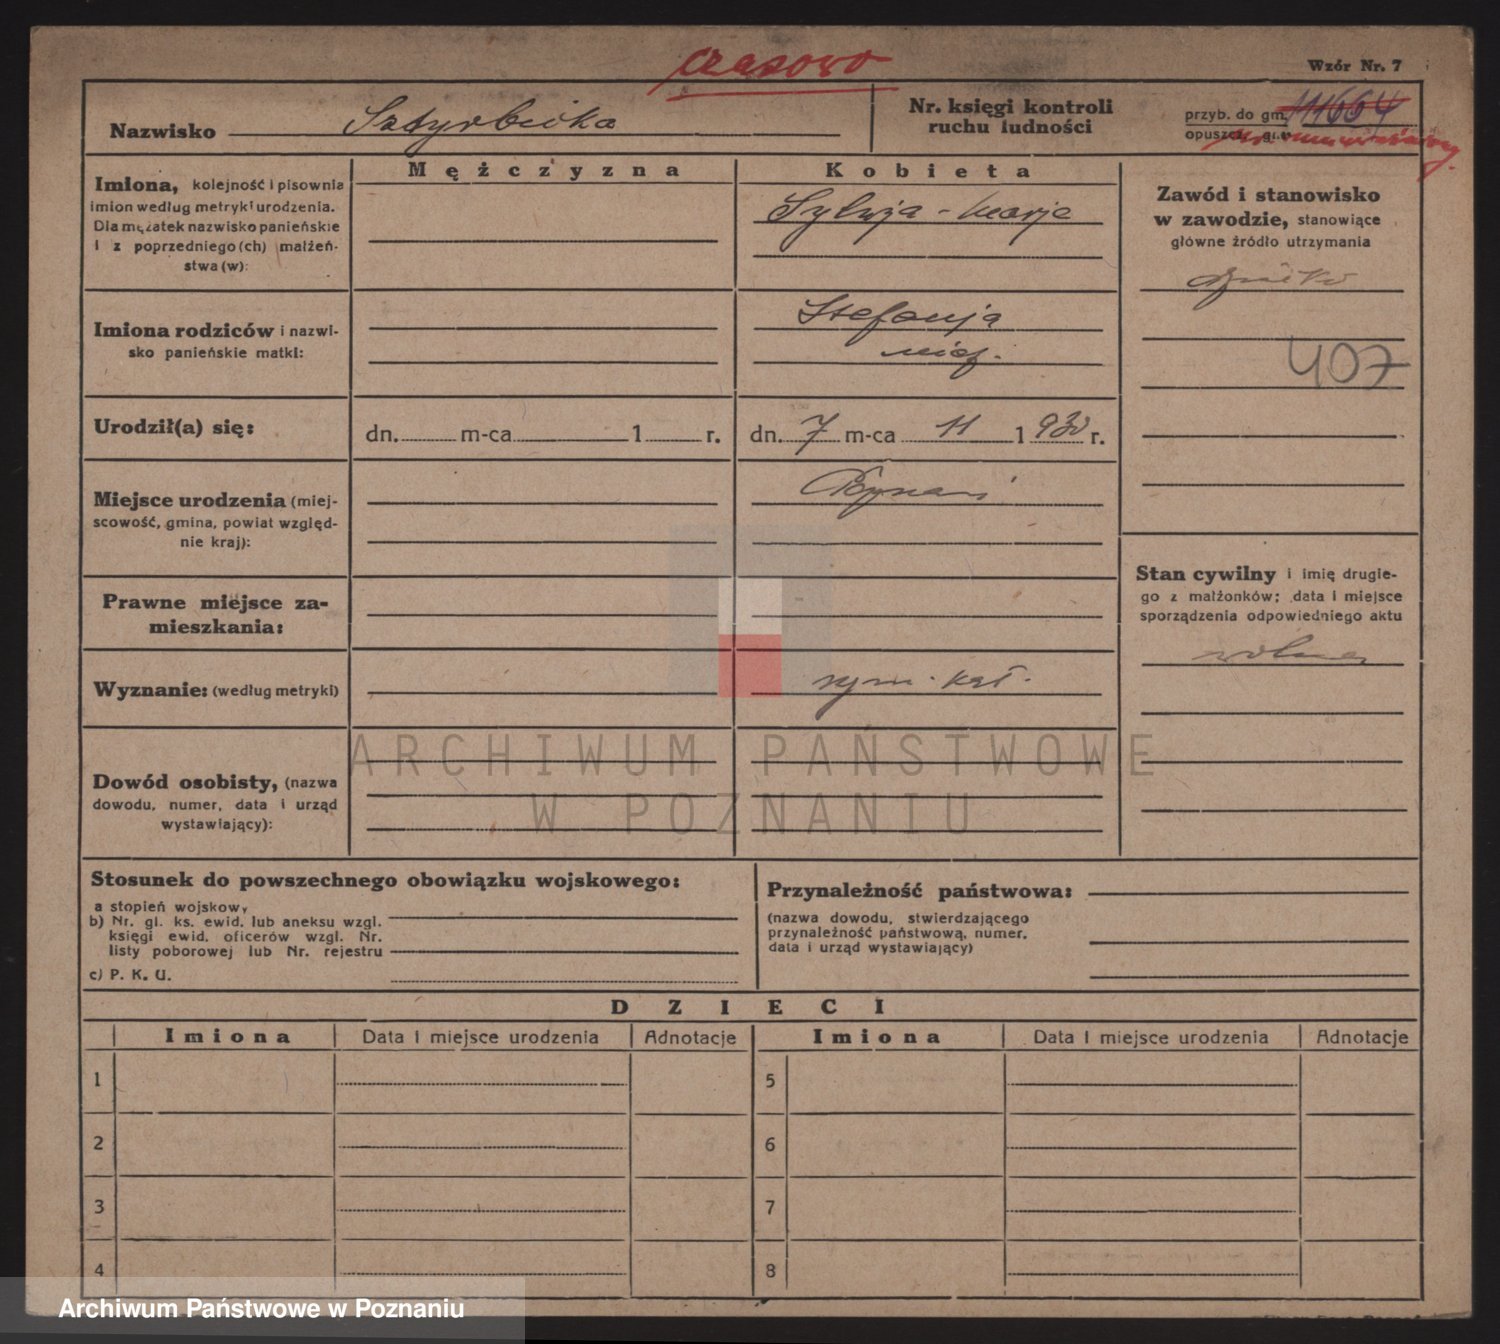 czasowo
Wzór Nr. 7
Nazwisko Sztyrbicka
Nr. księgi kontroli
ruchu ludności
przyb. do gm. 111664
opuszcz. gm.
Mężczyzna
Kobieta
Imiona, kolejność i pisownia
imion według metryki urodzenia.
Dla mężatek nazwisko panieńskie
i z poprzedniego (ch) małżeń-
stwa (w):
Sylwja - Marja
Zawód i stanowisko
w zawodzie, stanowiące
główne źródło utrzymania
Imiona rodziców i nazwi-
sko panieńskie matki:
Stefanja
407
Urodził(a) się:
dn. m-ca 1 r.
dn. 7 m-ca 11 1930 r.
Miejsce urodzenia (miej-
scowość, gmina, powiat względ-
nie kraj):
Poznań
Prawne miejsce za-
mieszkania:
Stan cywilny i imię drugie-
go z małżonków; data i miejsce
sporządzenia odpowiedniego aktu
wolna
Wyznanie: (według metryki)
rzym. kat.
Dowód osobisty, (nazwa
dowodu, numer, data i urząd
wystawiający):
ARCHIWUM PAŃSTWOWE
W POZNANIU
Stosunek do powszechnego obowiązku wojskowego:
a stopień wojskowy
b) Nr. gl. ks. ewid. lub aneksu wzgl.
księgi ewid. oficerów wzgl. Nr.
listy poborowej lub Nr. rejestru
c) P. K. U.
Przynależność państwowa:
(nazwa dowodu, stwierdzającego
przynależność państwową, numer,
data i urząd wystawiający)
DZIECI
Imiona Data i miejsce urodzenia Adnotacje Imiona Data i miejsce urodzenia Adnotacje
1 5
2 6
3 7
4 8
Archiwum Państwowe w Poznaniu